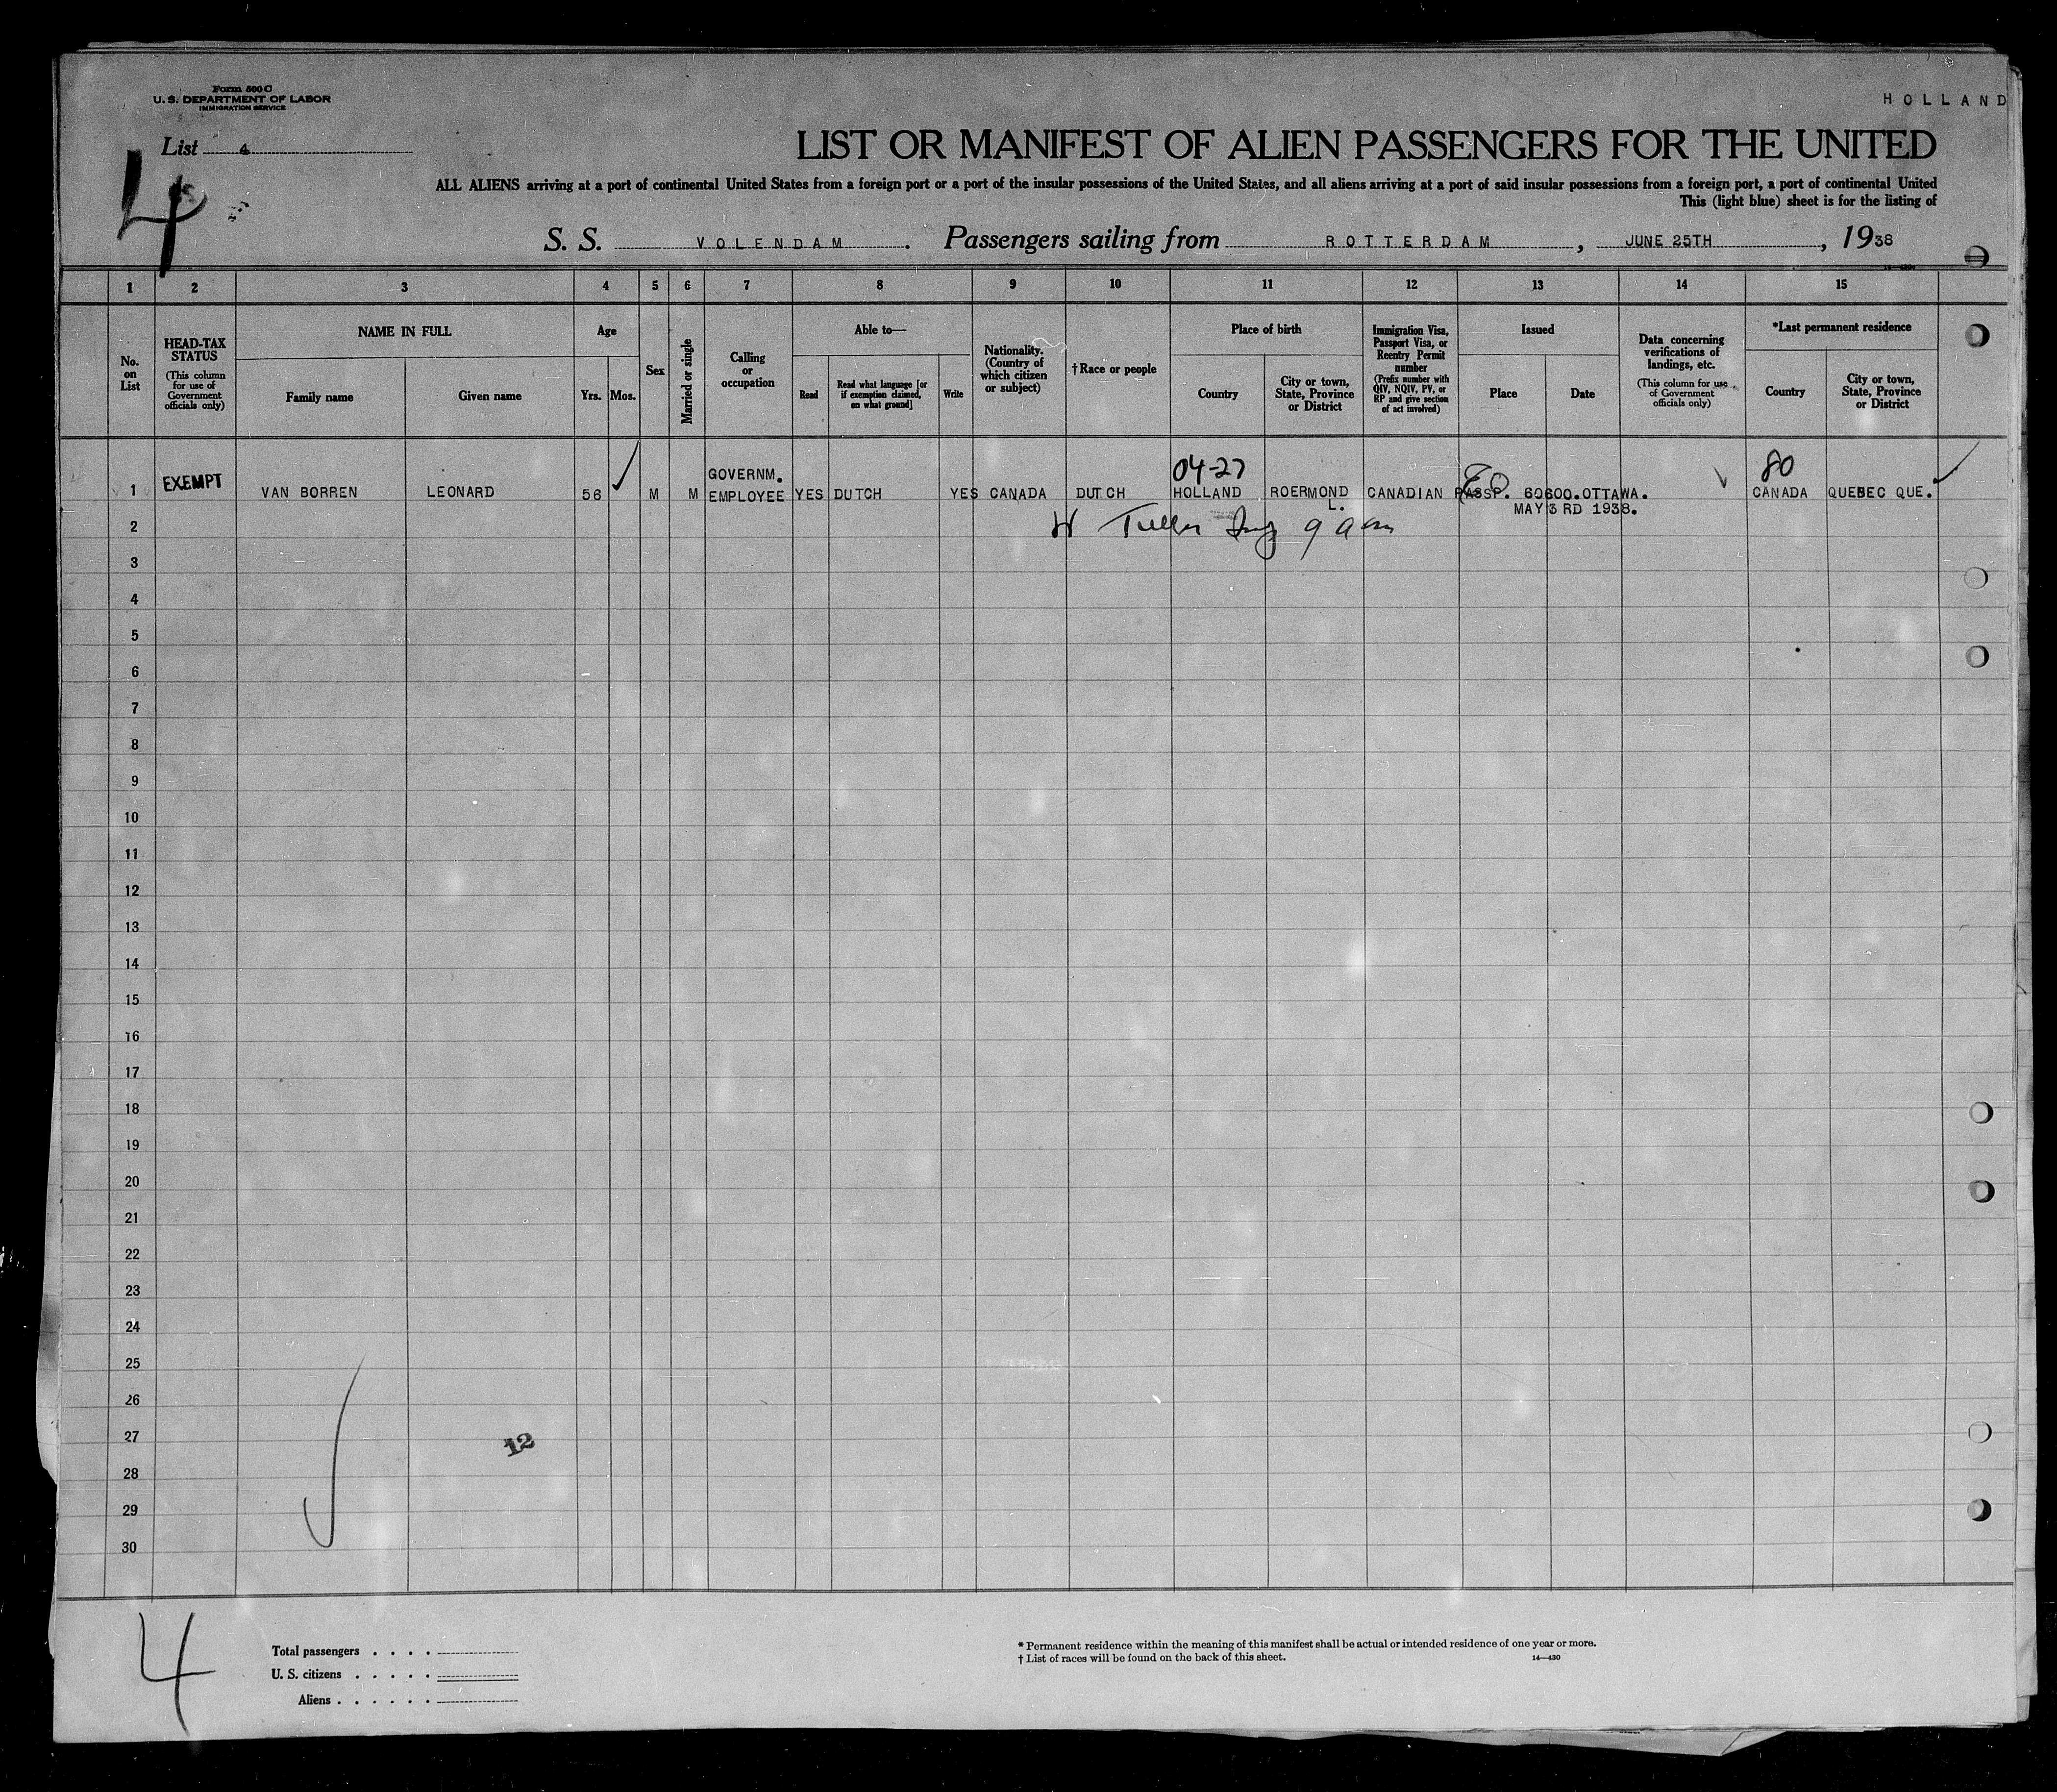 Form 500 C
U. S. DEPARTMENT OF LABOR
IMMIGRATION SERVICE
HOLLAND
List 4
4
LIST OR MANIFEST OF ALIEN PASSENGERS FOR THE UNITED
ALL ALIENS arriving at a port of continental United States from a foreign port or a port of the insular possessions of the United States, and all aliens arriving at a port of said insular possessions from a foreign port, a port of continental United
This (light blue) sheet is for the listing of
S. S. VOLENDAM. Passengers sailing from ROTTERDAM, JUNE 25TH, 1938
1 2 3 4 5 6 7 8 9 10 11 12 13 14 15
No. on List
HEAD-TAX STATUS
(This column for use of Government officials only)
NAME IN FULL
Family name
Given name
Age
Yrs. Mos.
Sex
Married or single
Calling or occupation
Able to—
Read
Read what language [or if exemption claimed, on what ground]
Write
Nationality. (Country of which citizen or subject)
†Race or people
Place of birth
Country
City or town, State, Province or District
Immigration Visa, Passport Visa, or Reentry Permit number
(Prefix number with QIV, NQIV, PV, or RP and give section of act involved)
Issued
Place
Date
Data concerning verifications of landings, etc.
(This column for use of Government officials only)
*Last permanent residence
Country
City or town, State, Province or District
04-27 80
GOVERNM.
1 EXEMPT VAN BORREN LEONARD 56 ✓ M M EMPLOYEE YES DUTCH YES CANADA DUTCH HOLLAND ROERMOND CANADIAN PASSP. 60600.OTTAWA. CANADA QUEBEC QUE.
L. MAY 3 RD 1938.
2
3
4
5
6
7
8
9
10
11
12
13
14
15
16
17
18
19
20
21
22
23
24
25
26
27
12
28
29
30
4
Total passengers . . . .
U. S. citizens . . . . .
Aliens . . . . . .
* Permanent residence within the meaning of this manifest shall be actual or intended residence of one year or more.
† List of races will be found on the back of this sheet. 14—430